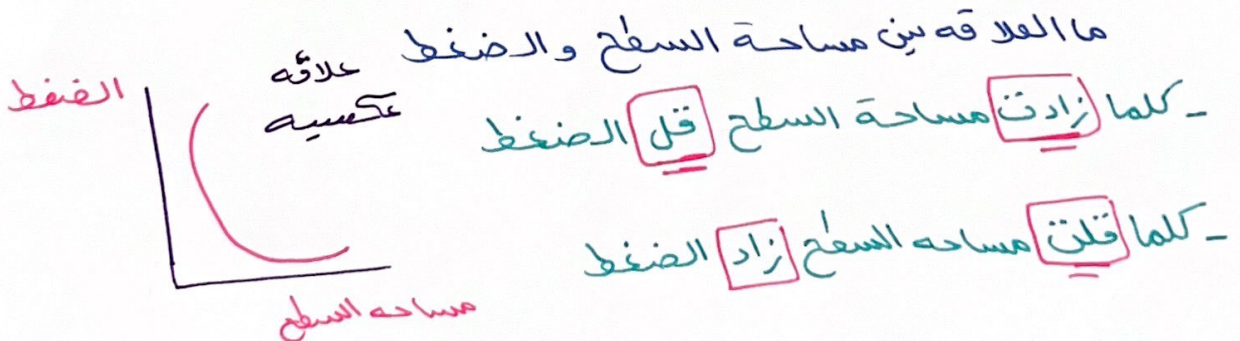 ما العلاقه بين مساحة السطح والضغط
- كلما زادت مساحة السطح قل الضغط
- كلما قلت مساحه السطح زاد الضغط
علاقه
عكسيه
الضغط
مساحه السطح